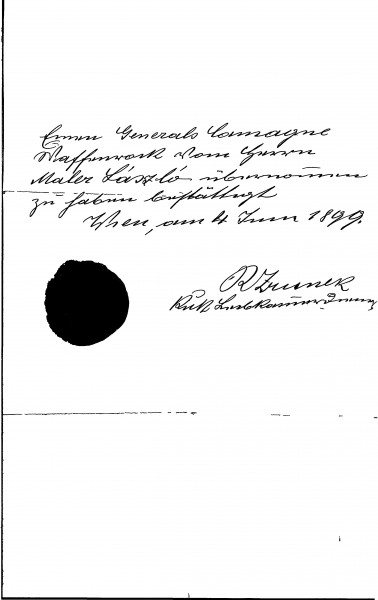 Einen Generals Camagne
Waffenrock vom Herrn
Maler László übernommen
zu haben bestättigt
Wien, am 4 Juni 1899.
R Zrunek
KuK Leibkammer